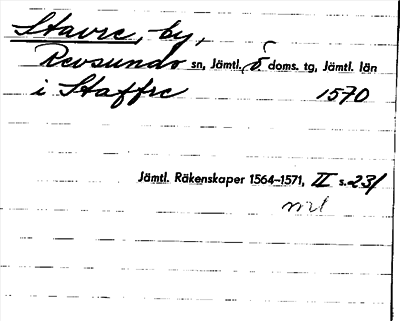 Stavre, by,
Revsunds sn, Jämtl. ö doms. tg, Jämtl. län
i Staffre 1570
Jämtl. Räkenskaper 1564–1571, II s. 231